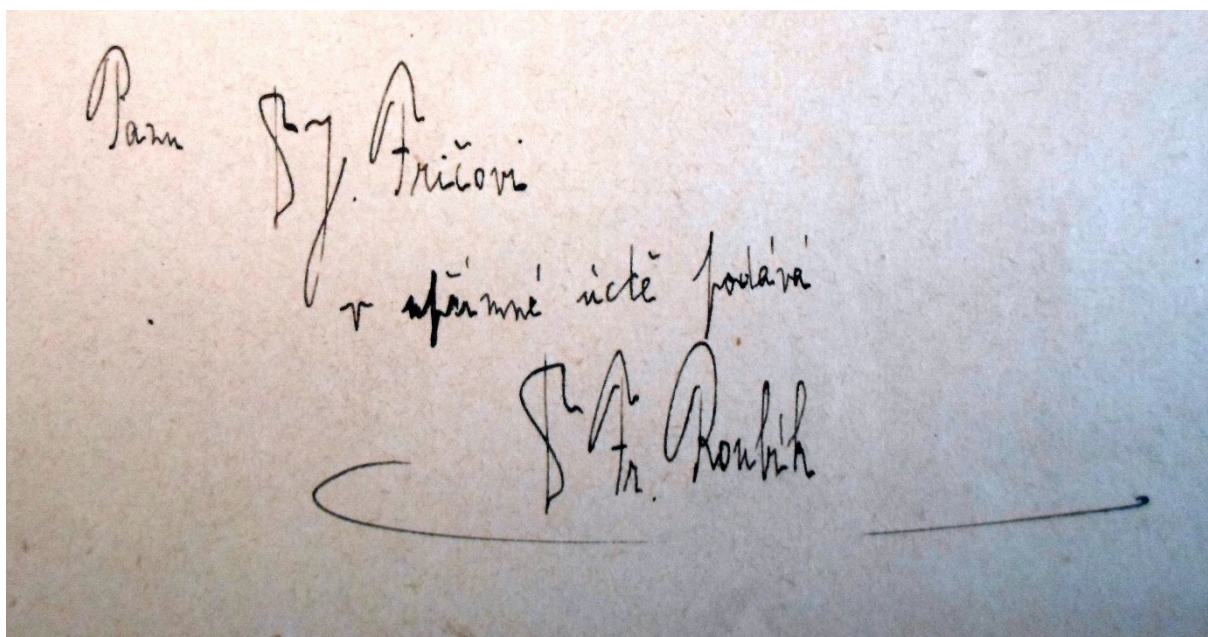 Panu Dr J. Fričovi
v upřímné úctě podává
Dr Fr. Roubík